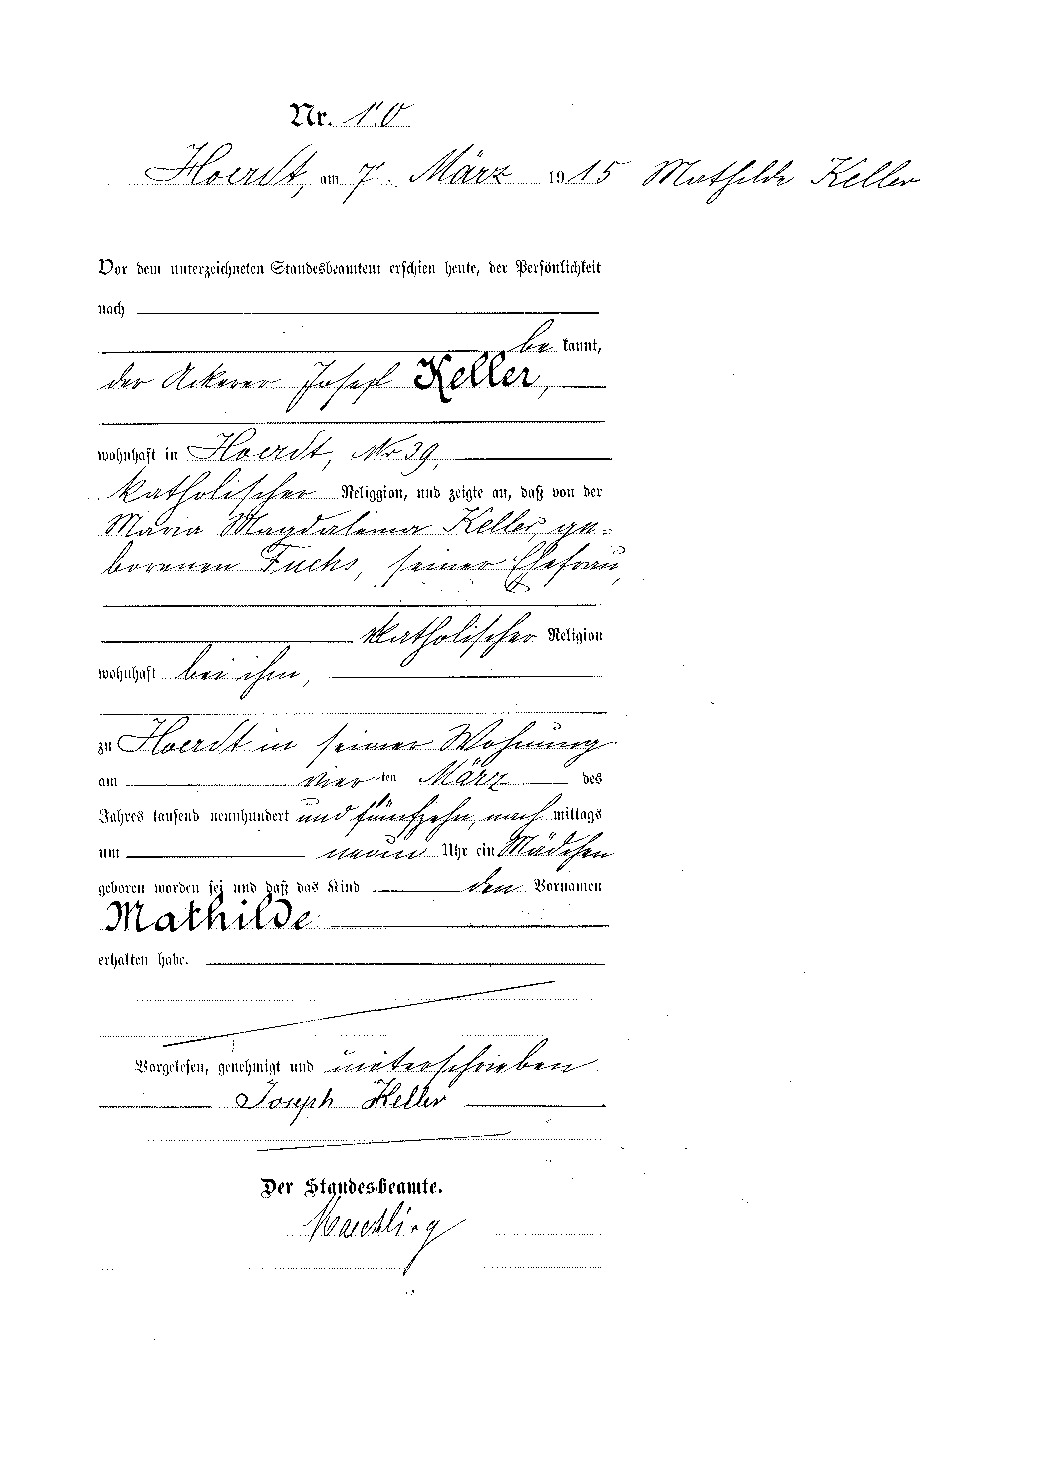 Nr. 10
Hoerdt, am 7. März 1915 Mathilde Keller
Vor dem unterzeichneten Standesbeamten erschien heute, der Persönlichkeit
nach
be kannt,
der Ackerer Josef Keller,
wohnhaft in Hoerdt, Nr 39,
katholischer Religgion, und zeigte an, daß von der
Maria Magdalena Keller, ge-
borenen Fuchs, seiner Ehefrau,
katholischer Religion
wohnhaft bei ihm,
zu Hoerdt in seiner Wohnung
am vier ten März des
Jahres tausend neunhundert und fünfzehn, nach mittags
um neun Uhr ein Mädchen
geboren worden sei und daß das Kind den Vornamen
Mathilde
erhalten habe.
Vorgelesen, genehmigt und unterschrieben
Joseph Keller
Der Standesbeamte.